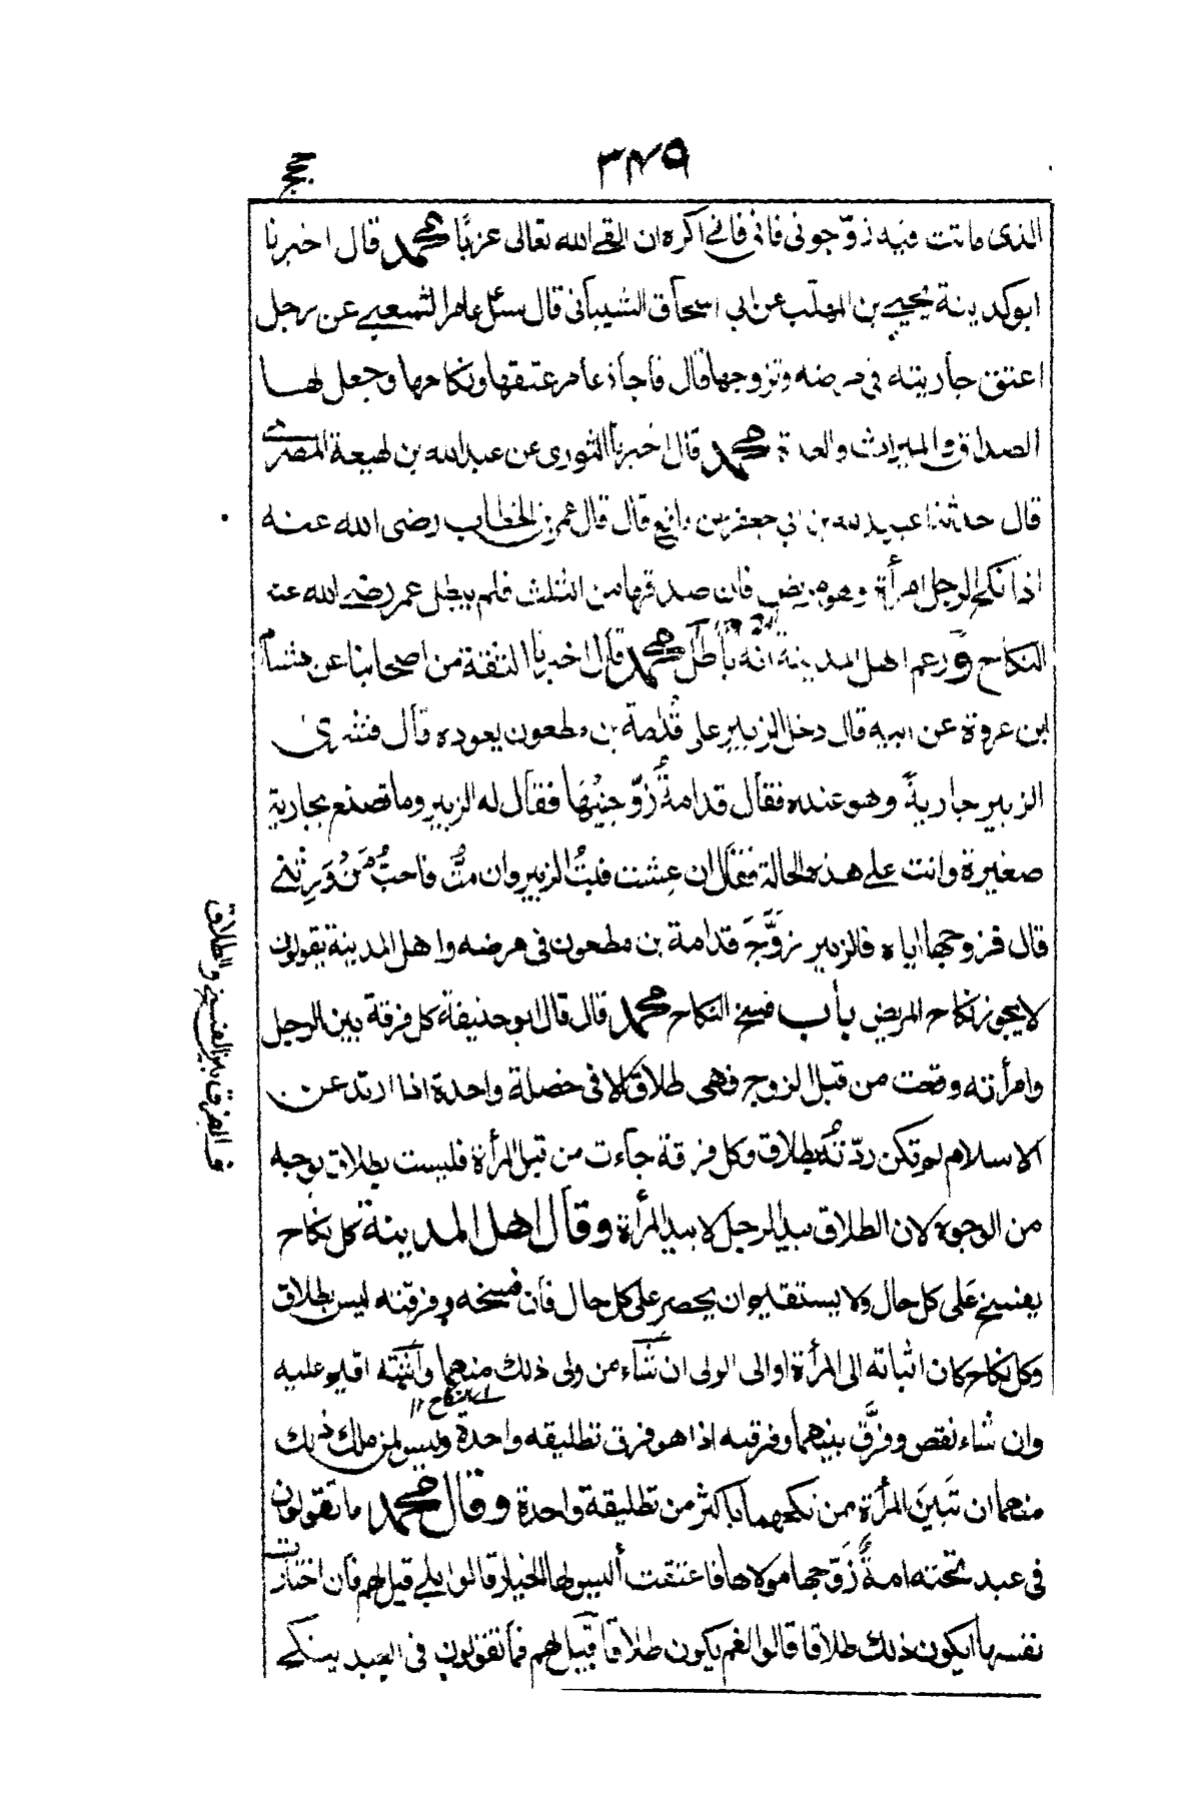 ٣٤٩
حجج
الذى ماتت فيه زوّجونى فانى فانى اكره ان القى الله تعالى عزبًا محمد قال اخبرنا
ابو كدينة يحيى بن المهلّب عن ابى اسحاق الشيبانى قال سئل عامر الشعبى عن رجل
اعتق جاريته فى مرضه وتزوجها قال فاجاز عامر عتقها ونكاحها وجعل لها
الصداق والميراث والعدة محمد قال اخبرنا الثورى عن عبد الله بن لهيعة المصرى
قال حدثنا عبيد الله بن ابى جعفر بن رافع قال قال عمر بن الخطاب رضى الله عنه
اذا نكح الرجل امرأة وهو مريض فان صدقها من الثلث فلم يبطل عمر رضى الله عنه
النكاح وزعم اهل المدينة انّه باطل محمد قال اخبرنا الثقة من اصحابنا عن هشام
ابن عروة عن ابيه قال دخل الزبير على قدامة بن مظعون يعوده قال فتشرى
الزبير جاريةً وهو عنده فقال قدامةُ زوّجنيها فقال له الزبير وما تصنع بجارية
صغيرة وانت على هذه الحالة فقال ان عِشت فبنتُ الزبير وان متُّ فاحبُّ مَن وَرِثنى
قال فزوجها اياه فالزبير زَوَّجَ قدامة بن مظعون فى مرضه واهل المدينة يقولون
لا يجوز نكاح المريض باب فسخ النكاح محمد قال قال ابو حنيفة كل فرقة بين الرجل
وامرأته وقعت من قبل الزوج فهى طلاق الا فى خصلة واحدة اذا ارتد عن
الاسلام لم تكن ردّتُه بطلاق وكل فرقة جاءت من قبل المرأة فليست بطلاق بوجه
من الوجوه لان الطلاق بيد الرجل لا بيد المرأة وقال اهل المدينة كل نكاح
يفسخ على كل حال ولا يستقيم ان يحصر على كل حال فان فسخه وفرقته ليس بطلاق
وكل نكاح كان اثباته الى المرأة او الى الولى ان شاء من ولى ذلك منهما واثبته اقيم عليه
اى النكاح ١٢
وان شاء نقص وفرَّق بينهما وفرقته اذا هو فرق تطليقه واحدة وليس لمن ملك ذلك
منهما ان تبين المرأة ممن نكحهما باكثر من تطليقة واحدة وقال محمد ما تقولون
فى عبد تحته امةٌ زَوّجها مولاها فاعتقت أليس لها الخيار قالوا بلى قيل لهم فان اختارت
نفسها أيكون ذلك طلاقا قالوا نعم يكون طلاقا قيل لهم فما تقولون فى العبد ينكح
ف الفرق بين الفسخ والطلاق